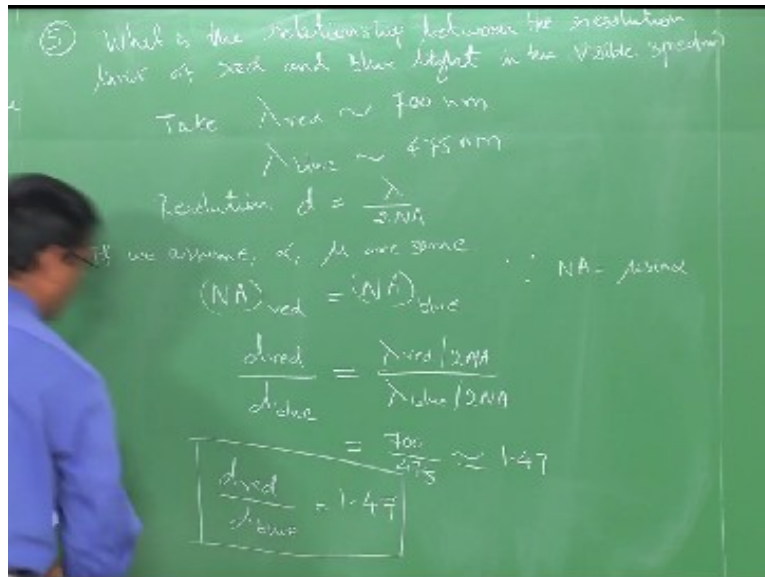 ⑤ What is the relationship between the resolution
limit of red and blue light in the visible spectrum
Take λred ~ 700 nm
λblue ~ 475 nm
Resolution d = λ/2NA
If we assume, α, μ are same ∵ NA = μsinα
(NA)red = (NA)blue
dred/dblue = (λred/2NA)/(λblue/2NA)
= 700/475 ≈ 1.47
dred/dblue = 1.47